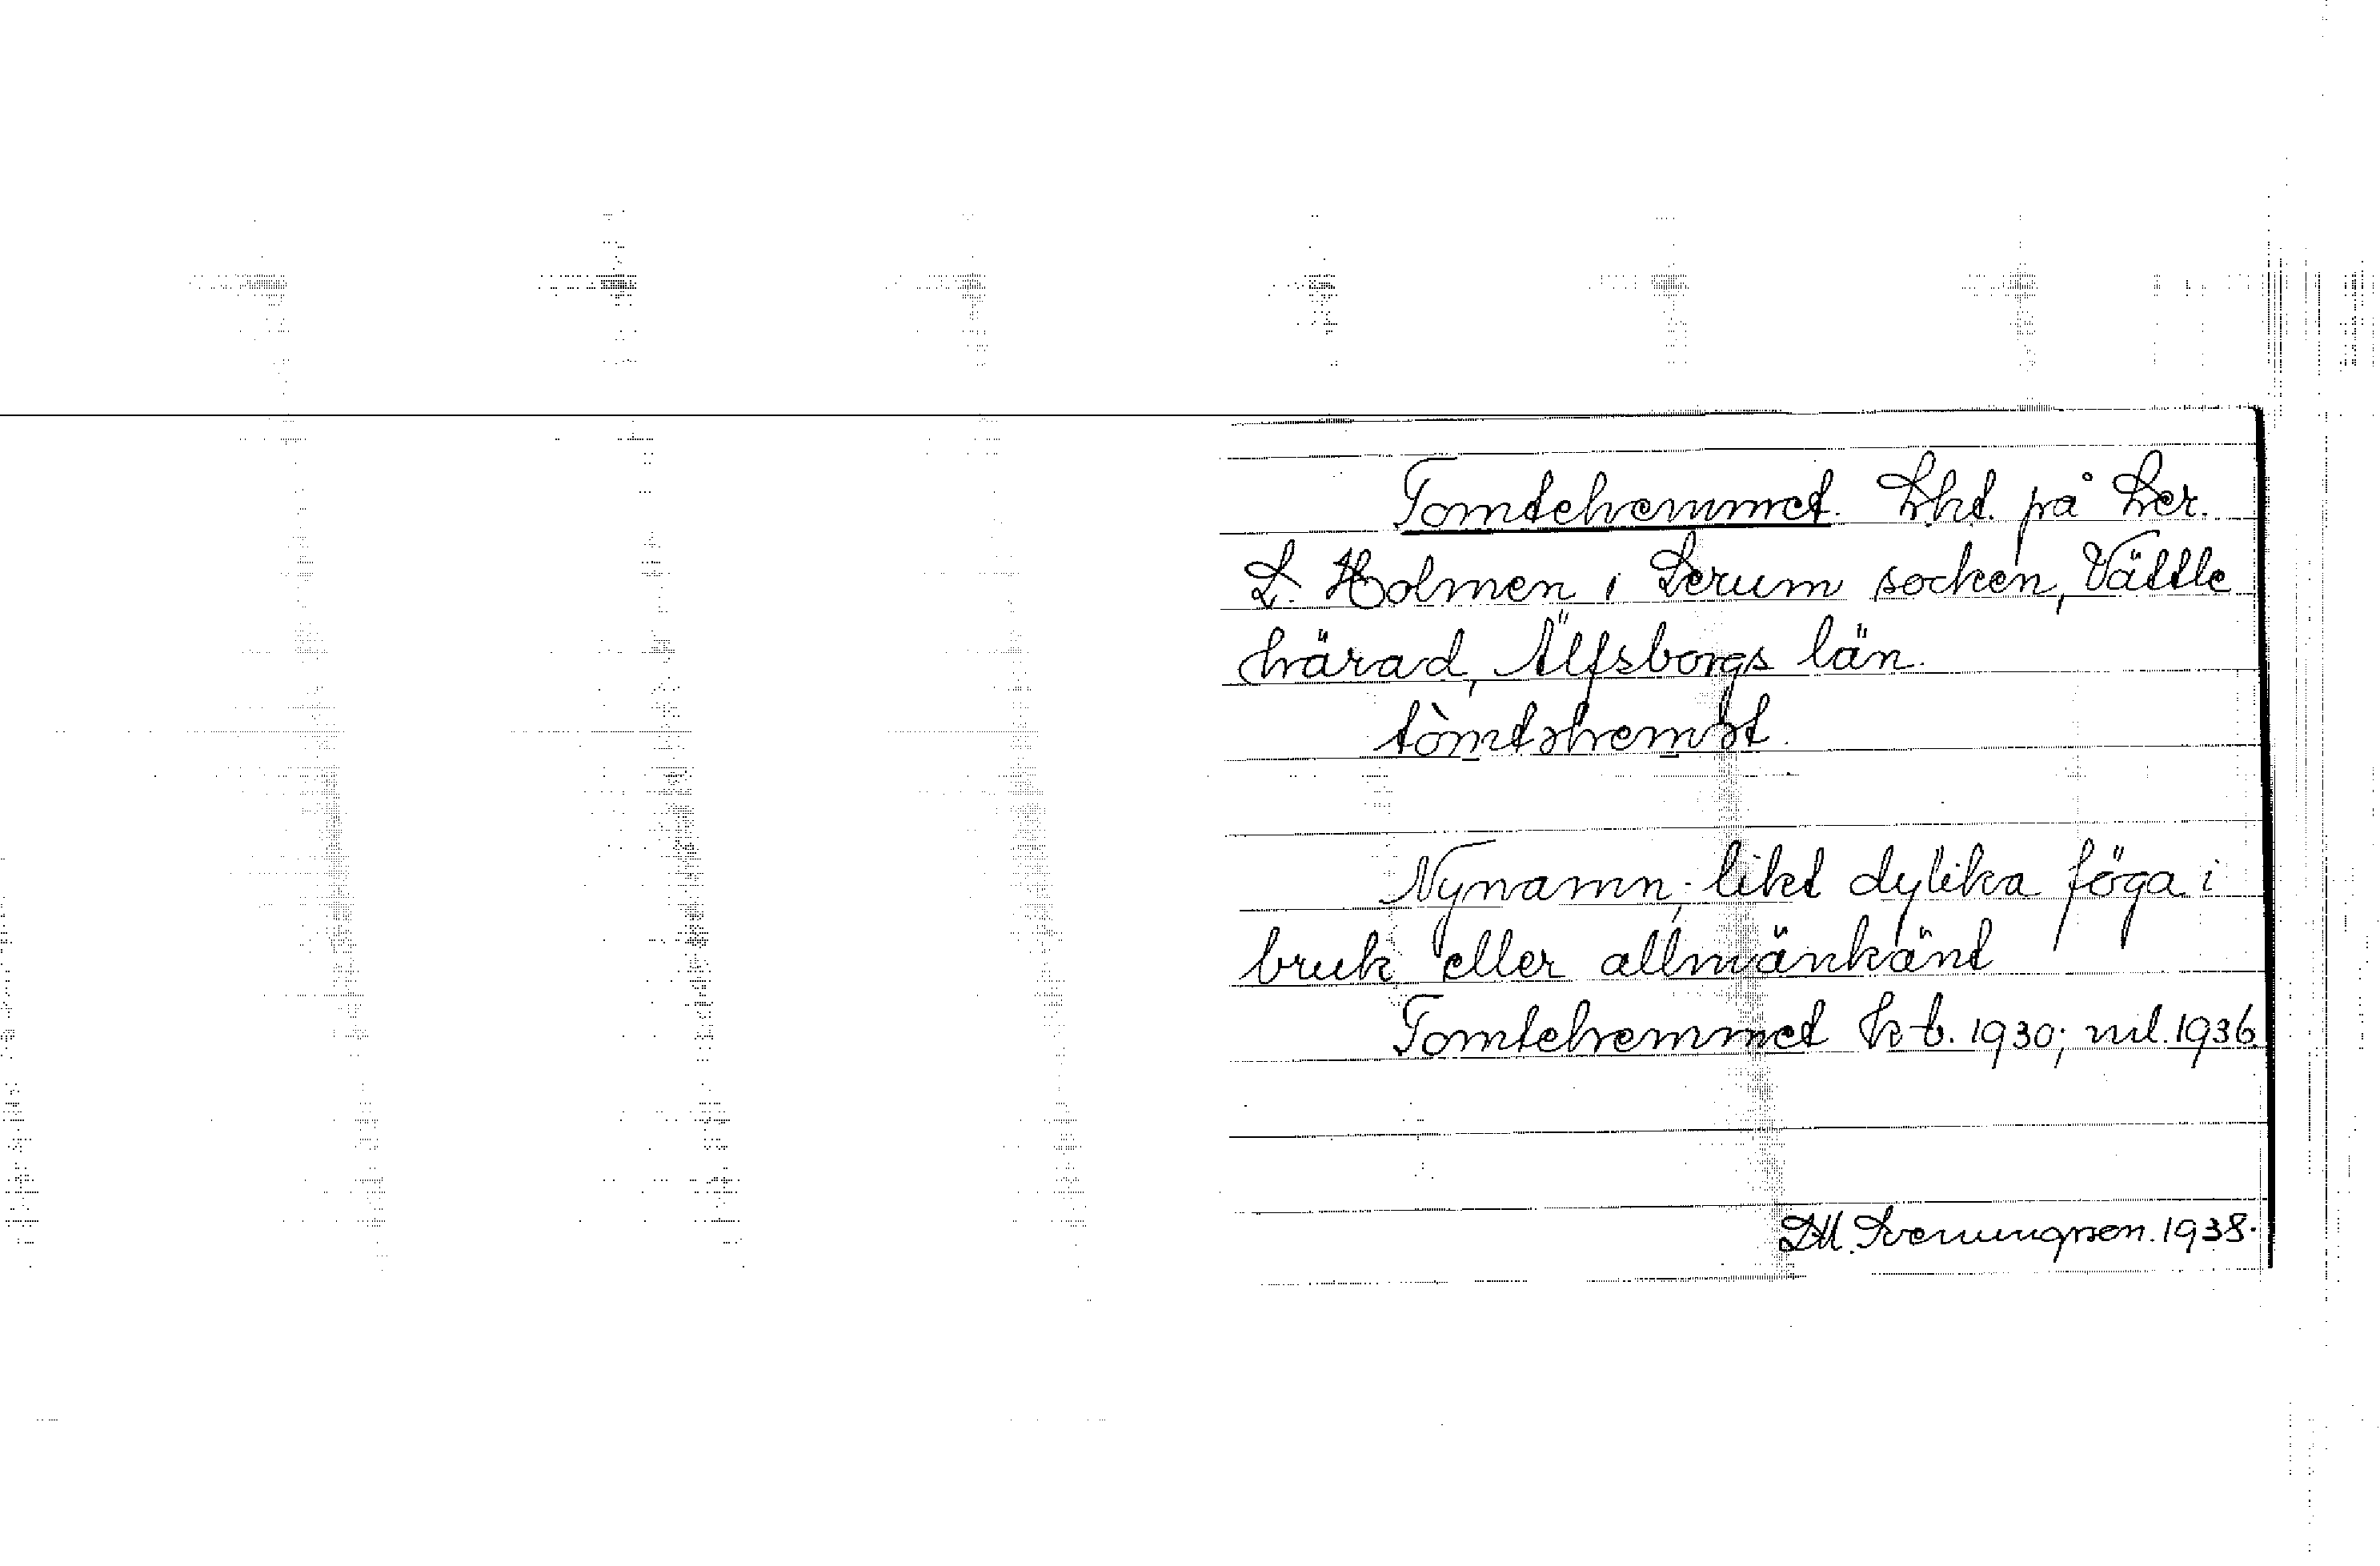 Tomtehemmet. Lht. på Ler.
L. Holmen i Lerum socken, Vättle
härad, Älfsborgs län.
tòmtəhemət.
Nynamn; likt dylika föga i
bruk eller allmänkänt
Tomtehemmet kb. 1930; ml. 1936.
1938.